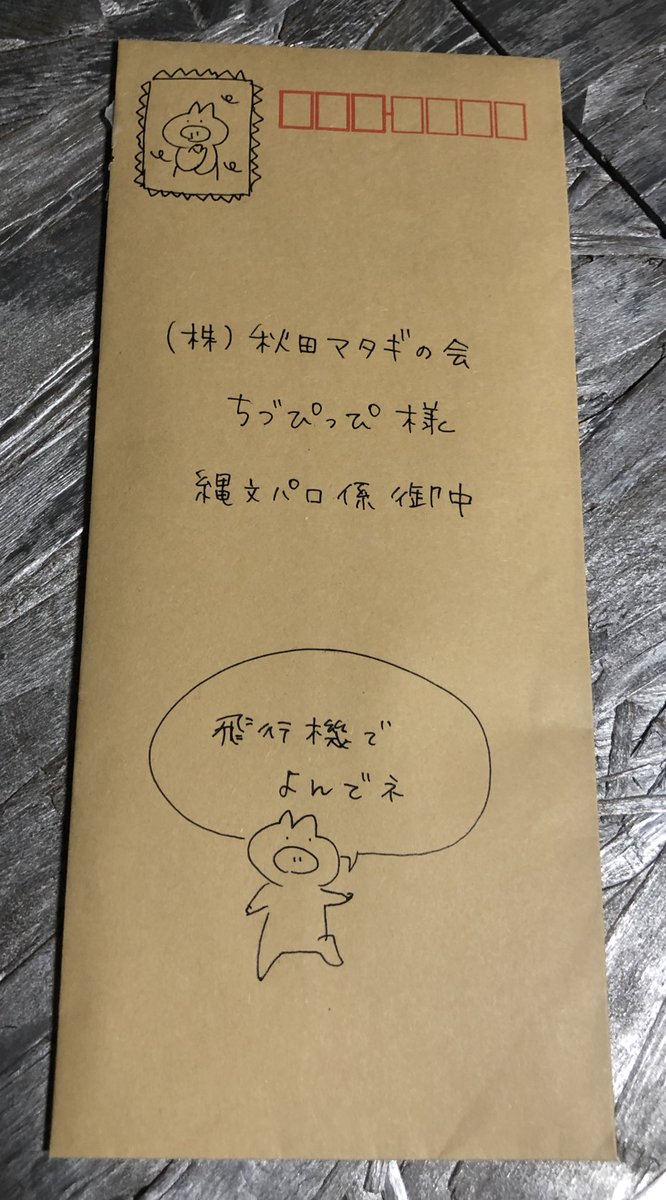 (株)秋田マタギの会
ちづぴっぴ様
縄文パロ係御中
飛行機で
よんでネ